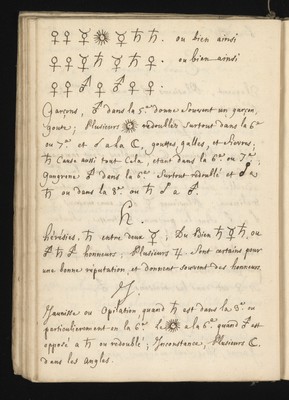 ♀ ♀ ☿ ☀ ☿ ♄ ♄. ou bien ainsi
♀ ♀ ☿ ♄ ☿ ♄ ♀. ou bien ainsi
♀ ♀ ♂ ♀ ♂ ♀ ♀.
Garçons, ♂ dans la 5.e donne Souvent un garçon,
goute; Plusieurs ☀ redoublez Surtout dans la 6e
ou 7e et ☌ a la ☾, gouttes, galles, et fievres;
♄ Cause aussi tout Cela, etant dans la 6e ou 7e;
Gangrene ♂ dans la 6e Surtout redoublé et ☌ a
♄ ou dans la 8e ou ♄ ☌ a ♂.
H.
hérésies. ♄ entre deux ☿; Ou Bien ♄ ☿ ♄, ou
♂ ♄ ♂. honneurs, Plusieurs ♃ Sont certains pour
une bonne réputation, et donnent souvent des honneurs.
J.
Jaunisse ou Opilation, quand ♄ est dans la 3e ou
particulierement en la 6e le ☀ a la 6e quand ♂ est
opposé a ♄ ou redoublé; Inconstance, Plusieurs ☾
dans les angles.